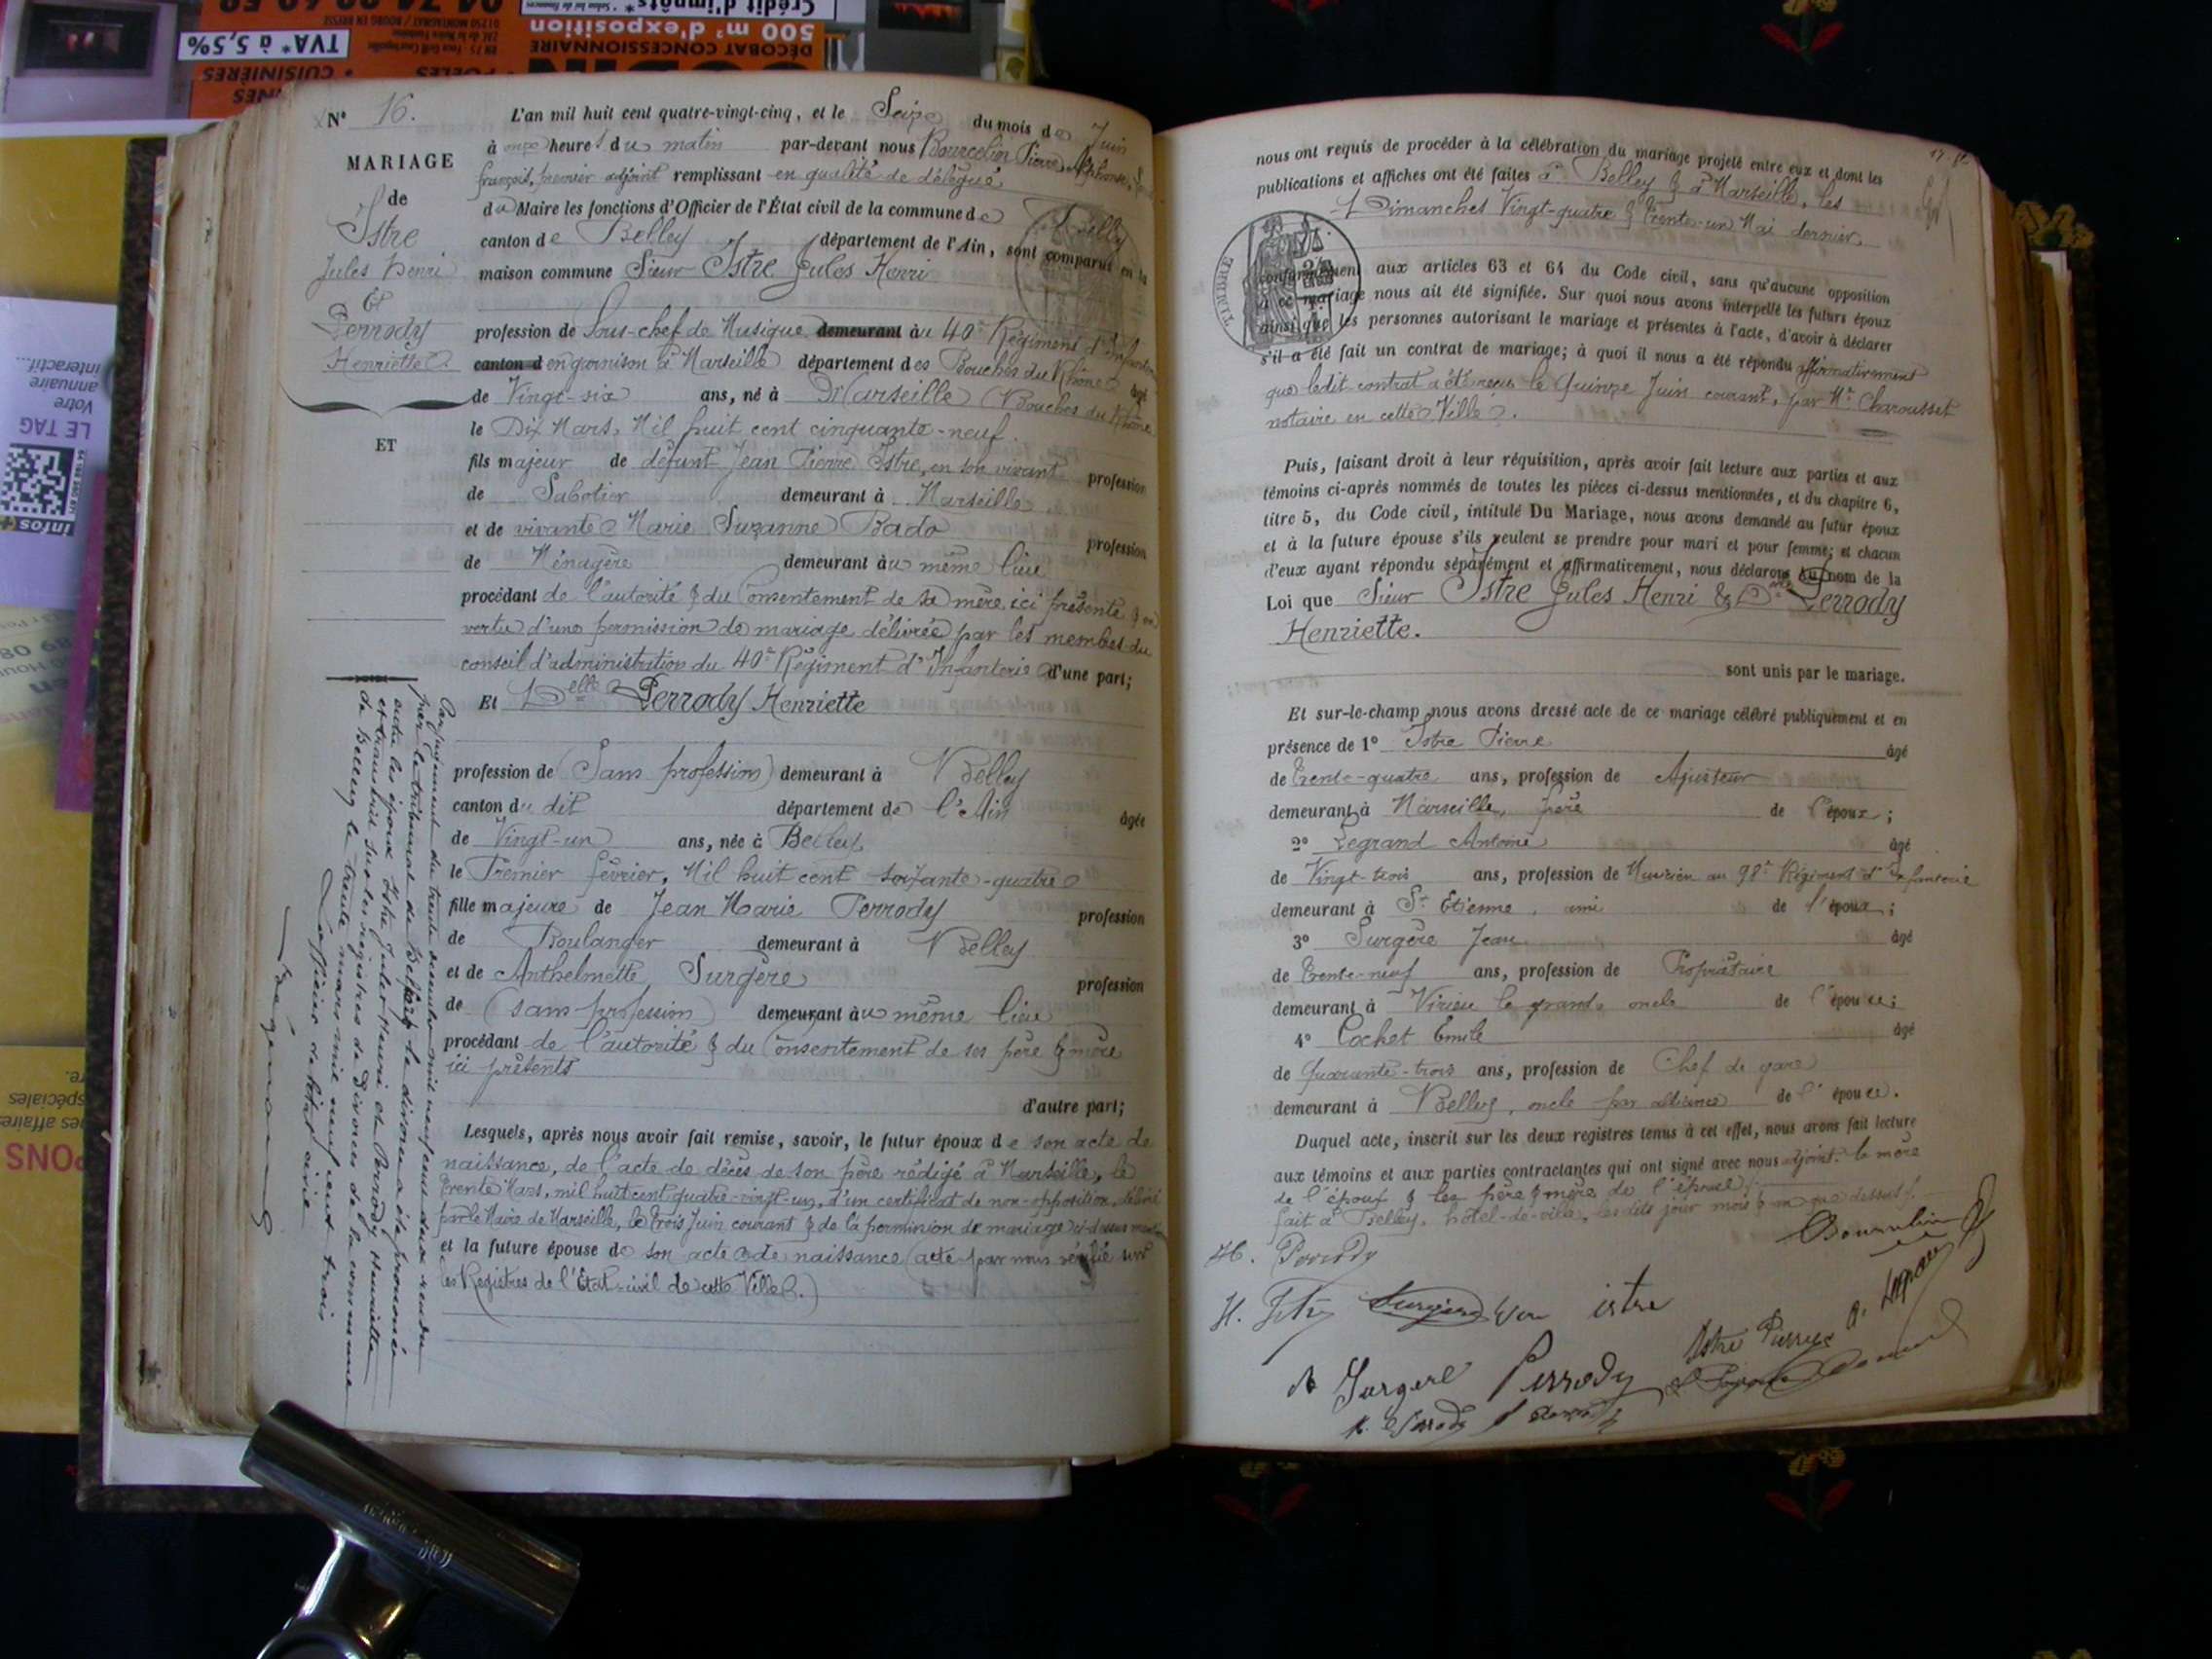 N° 16.
MARIAGE
de
Istre
Jules Henri
Et
Perrody
Henriette
ET
L'an mil huit cent quatre-vingt-cinq, et le Seize du mois de Juin
à onze heures du matin par-devant nous Bourcelin Pierre Alphonse
françois, premier adjoint remplissant en qualité de délégué
du Maire les fonctions d'Officier de l'État civil de la commune de Belley
canton de Belley département de l'Ain, sont comparus en la
maison commune Sieur Istre Jules Henri
profession de Sous-chef de Musique demeurant au 40e Régiment d'Infanterie
canton d en garnison à Marseille département des Bouches du Rhône âgé
de Vingt-six ans, né à Marseille (Bouches du Rhône
le Dix Mars, Mil huit cent cinquante-neuf.
fils majeur de défunt Jean Pierre Istre, en son vivant profession
de Sabotier demeurant à Marseille
et de vivante Marie Suzanne Bado profession
de Ménagère demeurant au même lieu
procédant de l'autorité & du Consentement de sa mère, ici présente & en
vertu d'une permission de mariage délivrée par les membres du
conseil d'administration du 40e Régiment d'Infanterie d'une part;
Et Delle Perrody Henriette
profession de (Sans profession) demeurant à Belley
canton du dit département de l'Ain âgée
de Vingt-un ans, née à Belley
le Premier février, Mil huit cent soixante-quatre
fille majeure de Jean Marie Perrody profession
de Boulanger demeurant à Belley
et de Anthelmette Surgère profession
de (sans profession) demeurant au même lieu
procédant de l'autorité & du Consentement de ses père & mère
ici présents
d'autre part;
Lesquels, après nous avoir fait remise, savoir, le futur époux de son acte de
naissance, de l'acte de décès de son père rédigé à Marseille, le
trente Mars, mil huit cent quatre-vingt-un, d'un certificat de non-opposition, délivré
par le Maire de Marseille, le trois Juin courant & de la permission de mariage ci-dessus
et la future épouse de son acte de naissance (acte par nous vérifié sur
les Registres de l'État-civil de cette Ville.)
Par jugement du trente décembre mil neuf cent deux rendu
par le tribunal de Belfort le divorce a été prononcé
entre les époux Istre Jules Henri et Perrody Henriette
et transcrit sur les registres de divorces de la commune
de Belley le trente mars mil neuf cent trois
L'officier de l'état civil
nous ont requis de procéder à la célébration du mariage projeté entre eux et dont les
publications et affiches ont été faites à Belley & à Marseille, les
Dimanches Vingt-quatre & trente-un Mai dernier
TIMBRE
conformément aux articles 63 et 64 du Code civil, sans qu'aucune opposition
à ce mariage nous ait été signifiée. Sur quoi nous avons interpellé les futurs époux
ainsi que les personnes autorisant le mariage et présentes à l'acte, d'avoir à déclarer
s'il a été fait un contrat de mariage; à quoi il nous a été répondu affirmativement
que ledit contrat a été reçu le Quinze Juin courant, par Me Charousset
notaire en cette Ville.
Puis, faisant droit à leur réquisition, après avoir fait lecture aux parties et aux
témoins ci-après nommés de toutes les pièces ci-dessus mentionnées, et du chapitre 6,
titre 5, du Code civil, intitulé Du Mariage, nous avons demandé au futur époux
et à la future épouse s'ils veulent se prendre pour mari et pour femme; et chacun
d'eux ayant répondu séparément et affirmativement, nous déclarons au nom de la
Loi que Sieur Istre Jules Henri & Delle Perrody
Henriette.
sont unis par le mariage.
Et sur-le-champ nous avons dressé acte de ce mariage célébré publiquement et en
présence de 1° Istre Pierre âgé
de trente-quatre ans, profession de Ajusteur
demeurant à Marseille, frère de l'époux;
2° Legrand Antoine âgé
de Vingt-trois ans, profession de Musicien au 98e Régiment d'Infanterie
demeurant à St Etienne, ami de l'époux;
3° Surgère Jean âgé
de trente-neuf ans, profession de Propriétaire
demeurant à Virieu le grand, oncle de l'épouse;
4° Cochet Emile âgé
de Quarante-trois ans, profession de Chef de gare
demeurant à Belley, oncle par alliance de l'épouse.
Duquel acte, inscrit sur les deux registres tenus à cet effet, nous avons fait lecture
aux témoins et aux parties contractantes qui ont signé avec nous adjoint. la mère
de l'époux & les père & mère de l'épouse
fait à Belley, hôtel-de-ville, les dits jour mois & an que dessus.
H. Perrody
H. Istre Surgère Vve istre
A. Surgere Perrody Istre Pierre